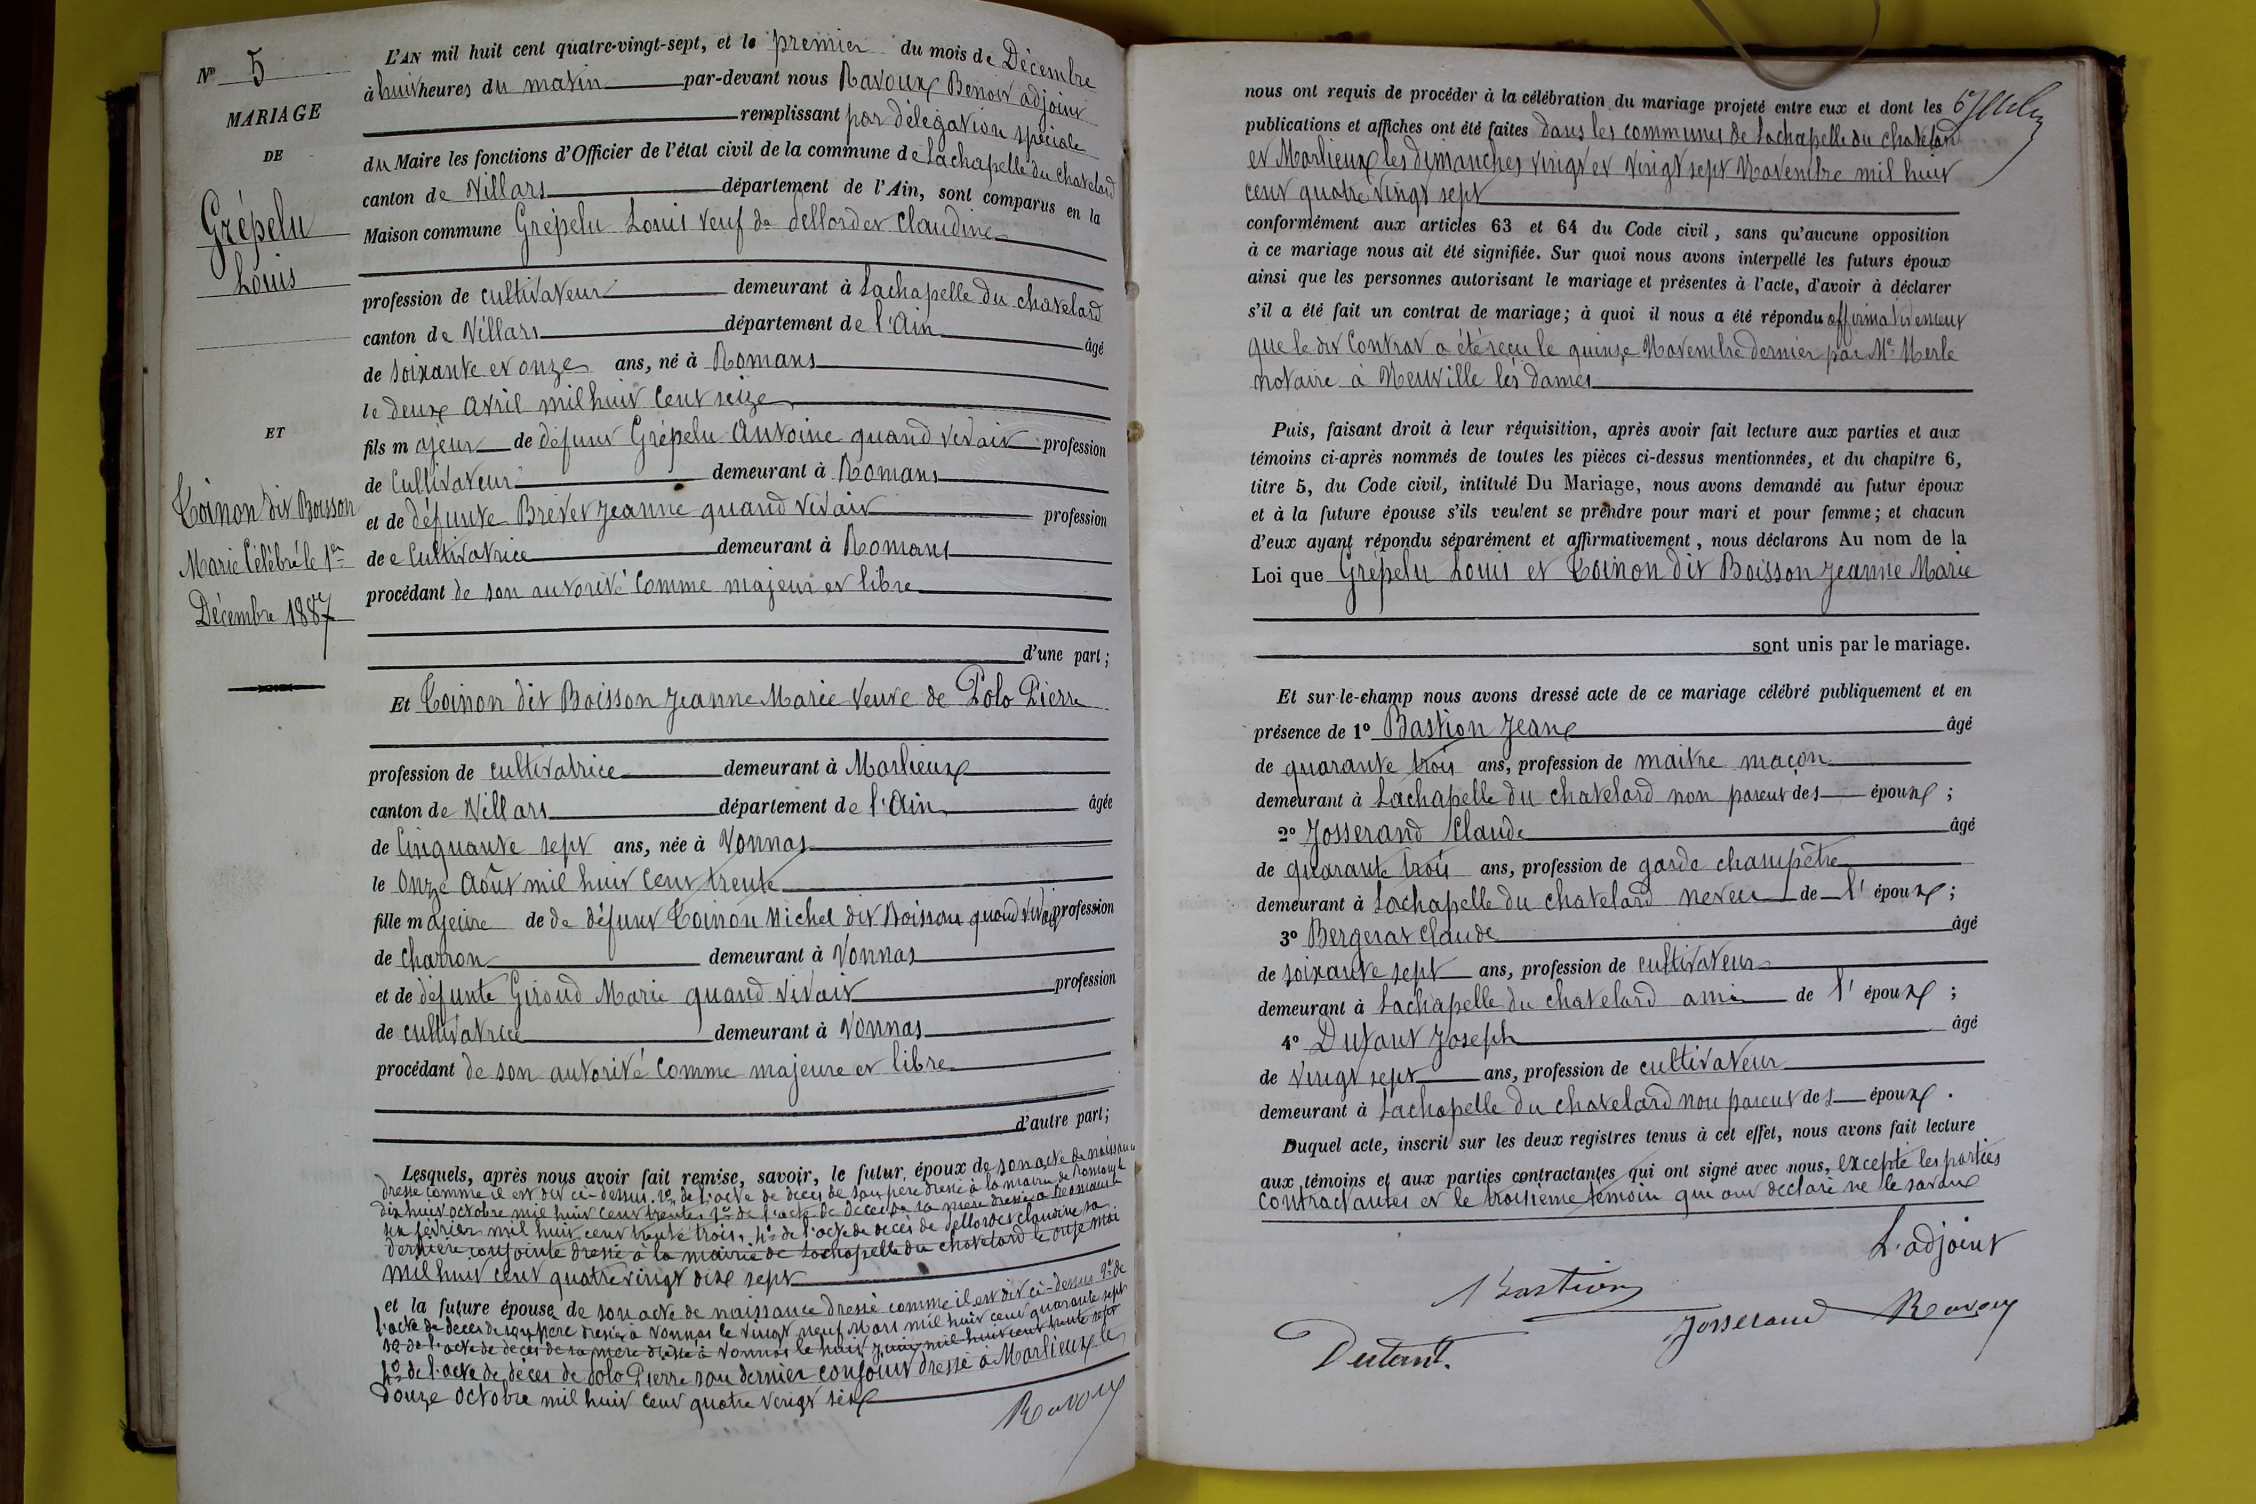 N° 5
MARIAGE
DE
Grépelu
Louis
ET
Coinon dit Boisson
Marie Célébré le 1er
Décembre 1887
L'AN mil huit cent quatre-vingt-sept, et le premier du mois de Décembre
à huit heures du matin par-devant nous Ravoux Benoit adjoint
remplissant par délégation spéciale
du Maire les fonctions d'Officier de l'état civil de la commune de Lachapelle du chatelard
canton de Villars département de l'Ain, sont comparus en la
Maison commune Grépelu Louis veuf de Dellorder Claudine
profession de cultivateur demeurant à Lachapelle du chatelard
canton de Villars département de l'Ain âgé
de soixante et onze ans, né à Romans
le deux avril mil huit cent seize
fils majeur de défunt Grépelu Antoine quand vivait profession
de Cultivateur demeurant à Romans
et de défunte Brevet Jeanne quand vivait profession
de e Cultivatrice demeurant à Romans
procédant de son autorité comme majeur et libre
d'une part ;
Et Coinon dit Boisson Jeanne Marie veuve de Polo Pierre
profession de cultivatrice demeurant à Marlieux
canton de Villars département de l'Ain âgée
de Cinquante sept ans, née à Vonnas
le onze Août mil huit cent trente
fille majeure de de défunt Coinon Michel dit Boisson quand vivait profession
de charron demeurant à Vonnas
et de défunte Giroud Marie quand vivait profession
de cultivatrice demeurant à Vonnas
procédant de son autorité comme majeure et libre
d'autre part ;
Lesquels, après nous avoir fait remise, savoir, le futur époux de son acte de naissance
dressé comme il est dit ci-dessus. 2° de l'acte de décès de son père dressé à la mairie de Romans le
dix huit octobre mil huit cent trente. 3° de l'acte de décès de sa mère dressé à Romans le
six février mil huit cent trente trois, 4° de l'acte de décès de Dellorder Claudine sa
dernière conjointe dressé à la mairie de Lachapelle du chatelard le onze mai
mil huit cent quatre vingt dix sept
et la future épouse de son acte de naissance dressé comme il est dit ci-dessus 2° de
l'acte de décès de son père dressé à Vonnas le vingt neuf Mars mil huit cent quarante sept
3° de l'acte de décès de sa mère dressé à Vonnas le huit juin mil huit cent trente sept
4° de l'acte de décès de Polo Pierre son dernier conjoint dressé à Marlieux le
douze octobre mil huit cent quatre vingt six
Ravoux
nous ont requis de procéder à la célébration du mariage projeté entre eux et dont les
publications et affiches ont été faites dans les communes de Lachapelle du chatelard
et Marlieux les dimanches vingt et vingt sept Novembre mil huit
cent quatre vingt sept
conformément aux articles 63 et 64 du Code civil, sans qu'aucune opposition
à ce mariage nous ait été signifiée. Sur quoi nous avons interpellé les futurs époux
ainsi que les personnes autorisant le mariage et présentes à l'acte, d'avoir à déclarer
s'il a été fait un contrat de mariage ; à quoi il nous a été répondu affirmativement
que le dit Contrat a été reçu le quinze Novembre dernier par Me Merle
notaire à Neuville les dames
Puis, faisant droit à leur réquisition, après avoir fait lecture aux parties et aux
témoins ci-après nommés de toutes les pièces ci-dessus mentionnées, et du chapitre 6,
titre 5, du Code civil, intitulé Du Mariage, nous avons demandé au futur époux
et à la future épouse s'ils veulent se prendre pour mari et pour femme ; et chacun
d'eux ayant répondu séparément et affirmativement, nous déclarons Au nom de la
Loi que Grépelu Louis et Coinon dit Boisson Jeanne Marie
sont unis par le mariage.
Et sur-le-champ nous avons dressé acte de ce mariage célébré publiquement et en
présence de 1° Bastion Jean âgé
de quarante trois ans, profession de maitre maçon
demeurant à Lachapelle du chatelard non parent des époux ;
2° Josserand Claude âgé
de quarante trois ans, profession de garde champêtre
demeurant à Lachapelle du chatelard neveu de l' époux ;
3° Bergerat Claude âgé
de soixante sept ans, profession de cultivateur
demeurant à Lachapelle du chatelard ami de l' époux ;
4° Dutant Joseph âgé
de vingt sept ans, profession de cultivateur
demeurant à Lachapelle du chatelard non parent des époux .
Duquel acte, inscrit sur les deux registres tenus à cet effet, nous avons fait lecture
aux témoins et aux parties contractantes qui ont signé avec nous, excepté les parties
contractantes et le troisième témoin qui ont déclaré ne le savoir
L'adjoint
Bastion
Josserand
Ravoux
Dutant.